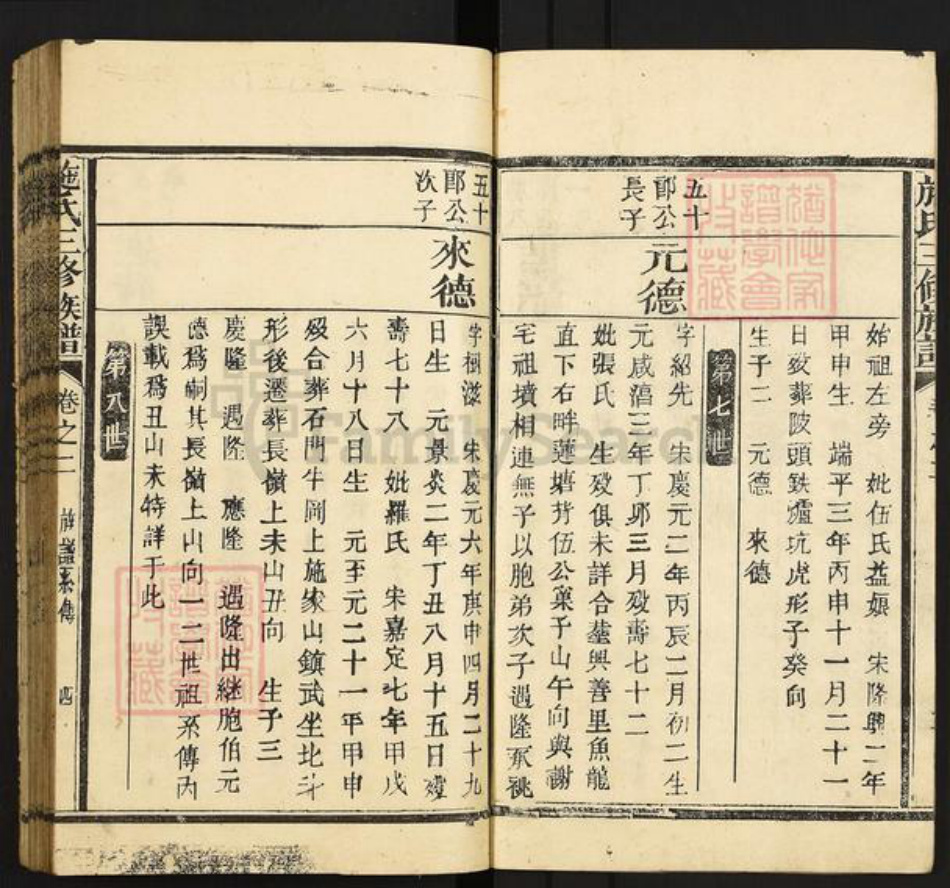 施氏三修族譜
始祖左旁 妣伍氏益娘 宋隆興二年
甲申生 端平三年丙申十一月二十一
日歿葬陂頭鉄爐坑虎形子癸向
生子二 元德 來德
第七世
五十
郎公
長子
元德
字紹先 宋慶元二年丙辰二月初二生
元咸淳三年丁卯三月歿壽七十二
妣張氏 生歿俱未詳合塟興善里魚龍
直下右畔蓮塘背伍公窠子山午向與謝
宅祖墳相連無子以胞弟次子遇隆承祧
五十
郎公
次子
來德
字 宋慶元六年庚申四月二十九
日生 元景炎二年丁丑八月十五日歿
壽七十八 妣羅氏 宋嘉定七年甲戌
六月十八日生 元至元二十一年甲申
歿合葬石門牛岡上施家山鎮武坐北斗
形後遷葬長嶺上未山丑向 生子三
慶隆 遇隆 應隆 遇隆出継胞伯元
德爲嗣其長嶺上山向一二世祖系傳內
誤載爲丑山未特詳于此
第八世
施氏三修族譜 卷之二 族譜系傳 四
FamilySearch